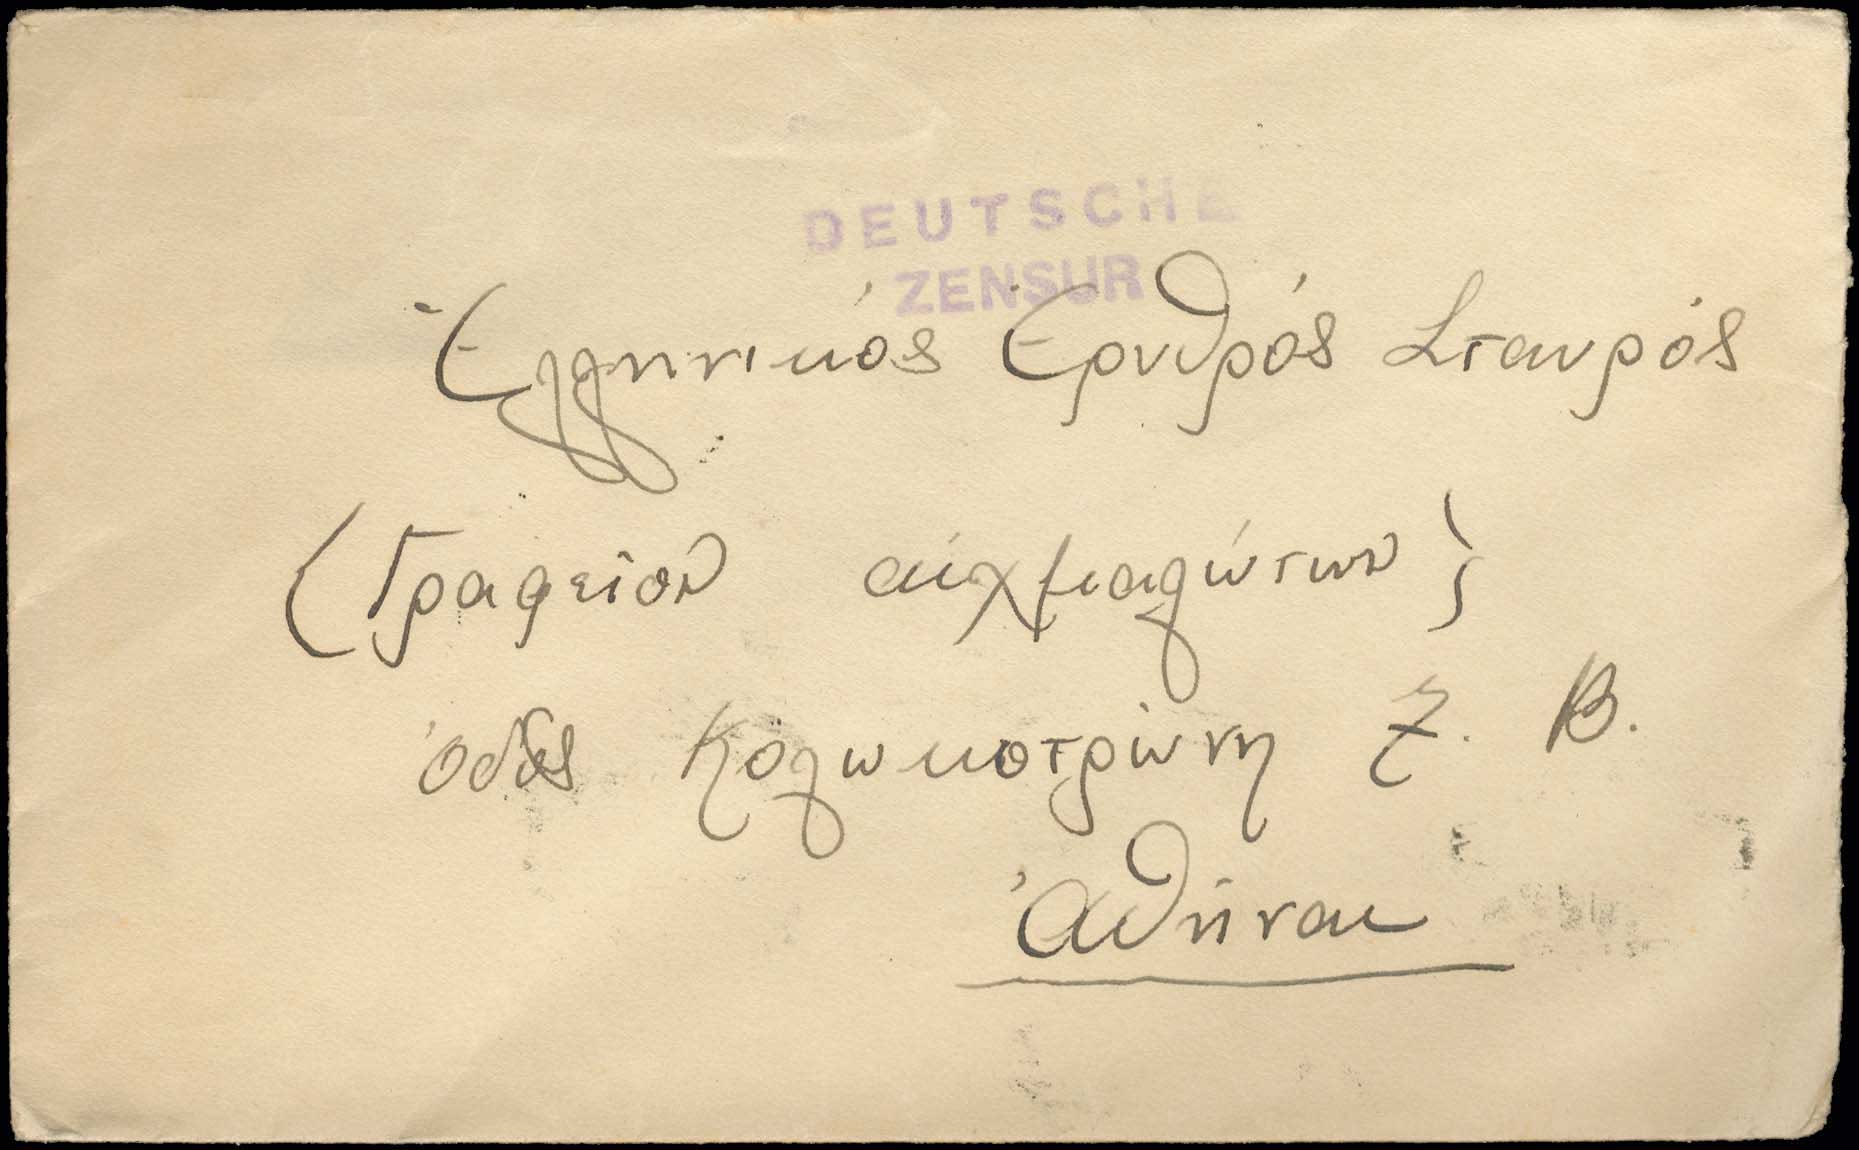 DEUTSCHE
ZENSUR
Ἑλληνικός Ἐρυθρός Σταυρός
(Γραφεῖον αἰχμαλώτων)
ὁδός Κολωκοτρώνη 7. B.
Ἀθήναι